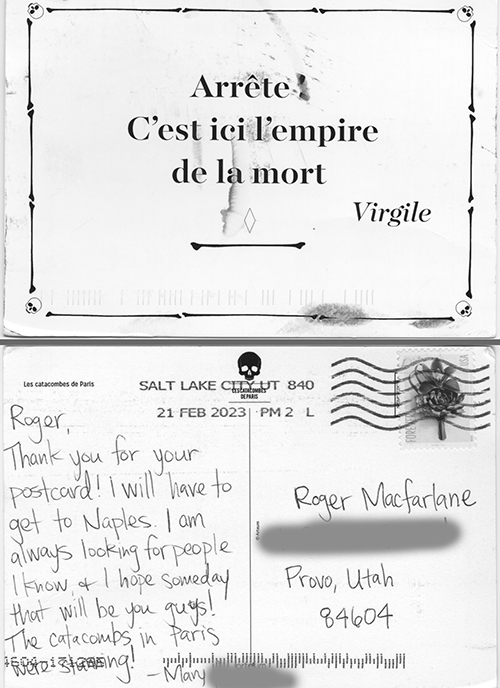 Arrête
C'est ici l'empire
de la mort
Virgile
Les catacombes de Paris
LES CATACOMBES
DE PARIS
SALT LAKE CITY UT 840
21 FEB 2023 PM 2 L
Roger,
Thank you for your
postcard! I will have to
get to Naples. I am
always looking for people
I know & I hope someday
that will be you guys!
The catacombs in Paris
were stunning!
-Mary
Roger Macfarlane
Provo, Utah
84604